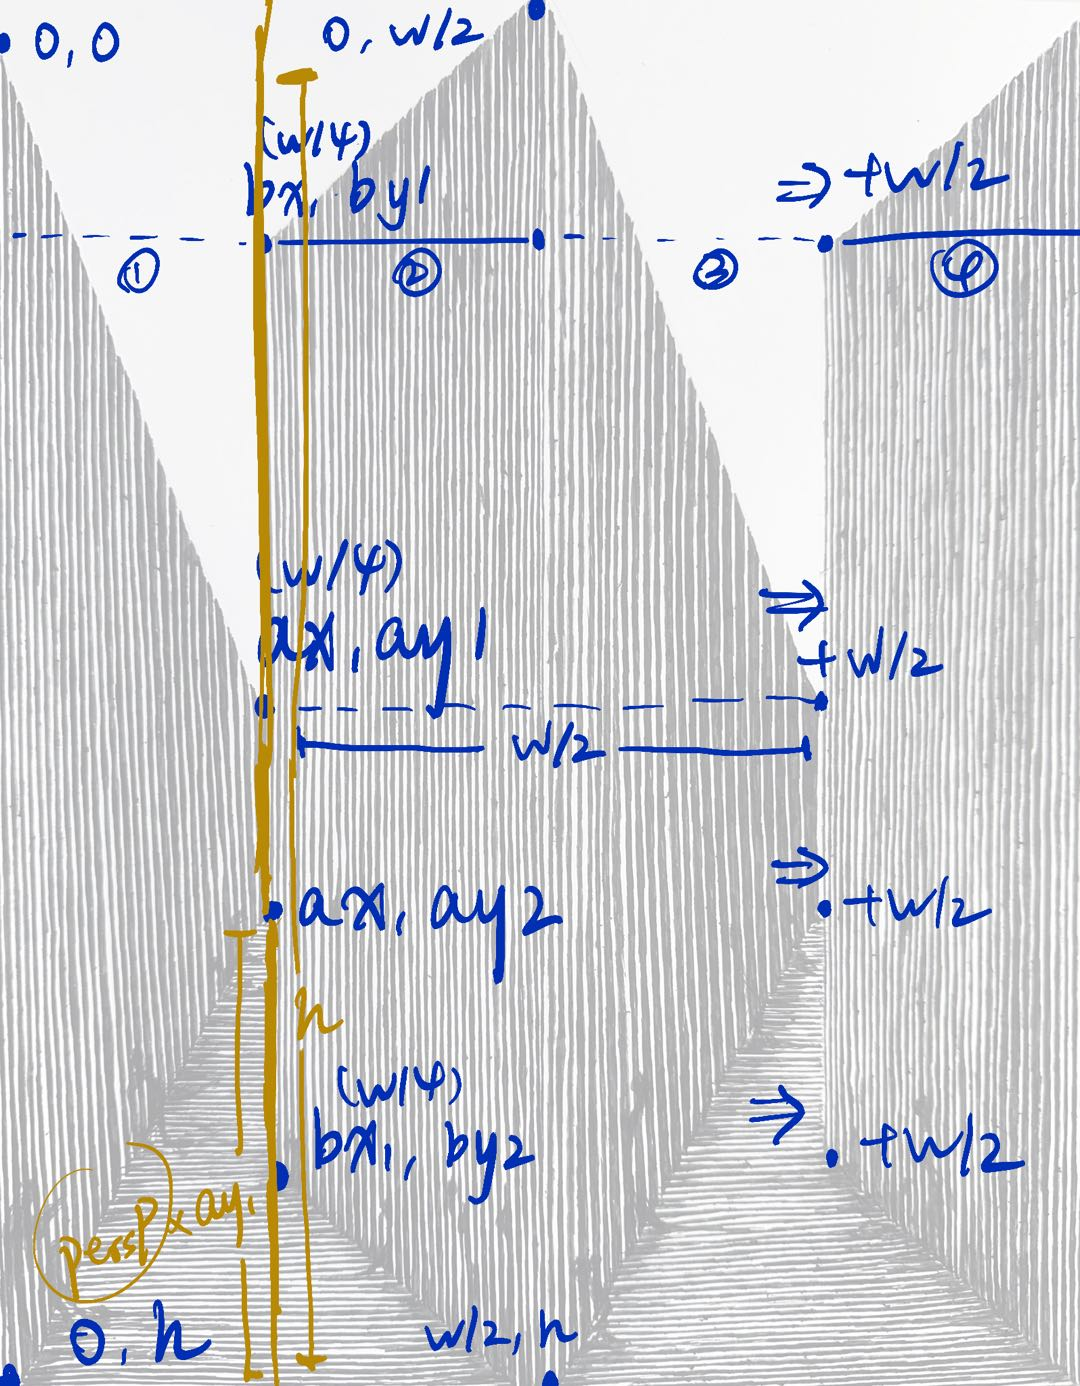 0, 0
0, w/2
(w/4)
bx, by1
⇒ +w/2
①
②
③
④
(w/4)
ax, ay1
⇒
+w/2
w/2
ax, ay2
⇒
+w/2
h
(w/4)
bx1, by2
⇒
+w/2
persp x ay1
0, h
w/2, h